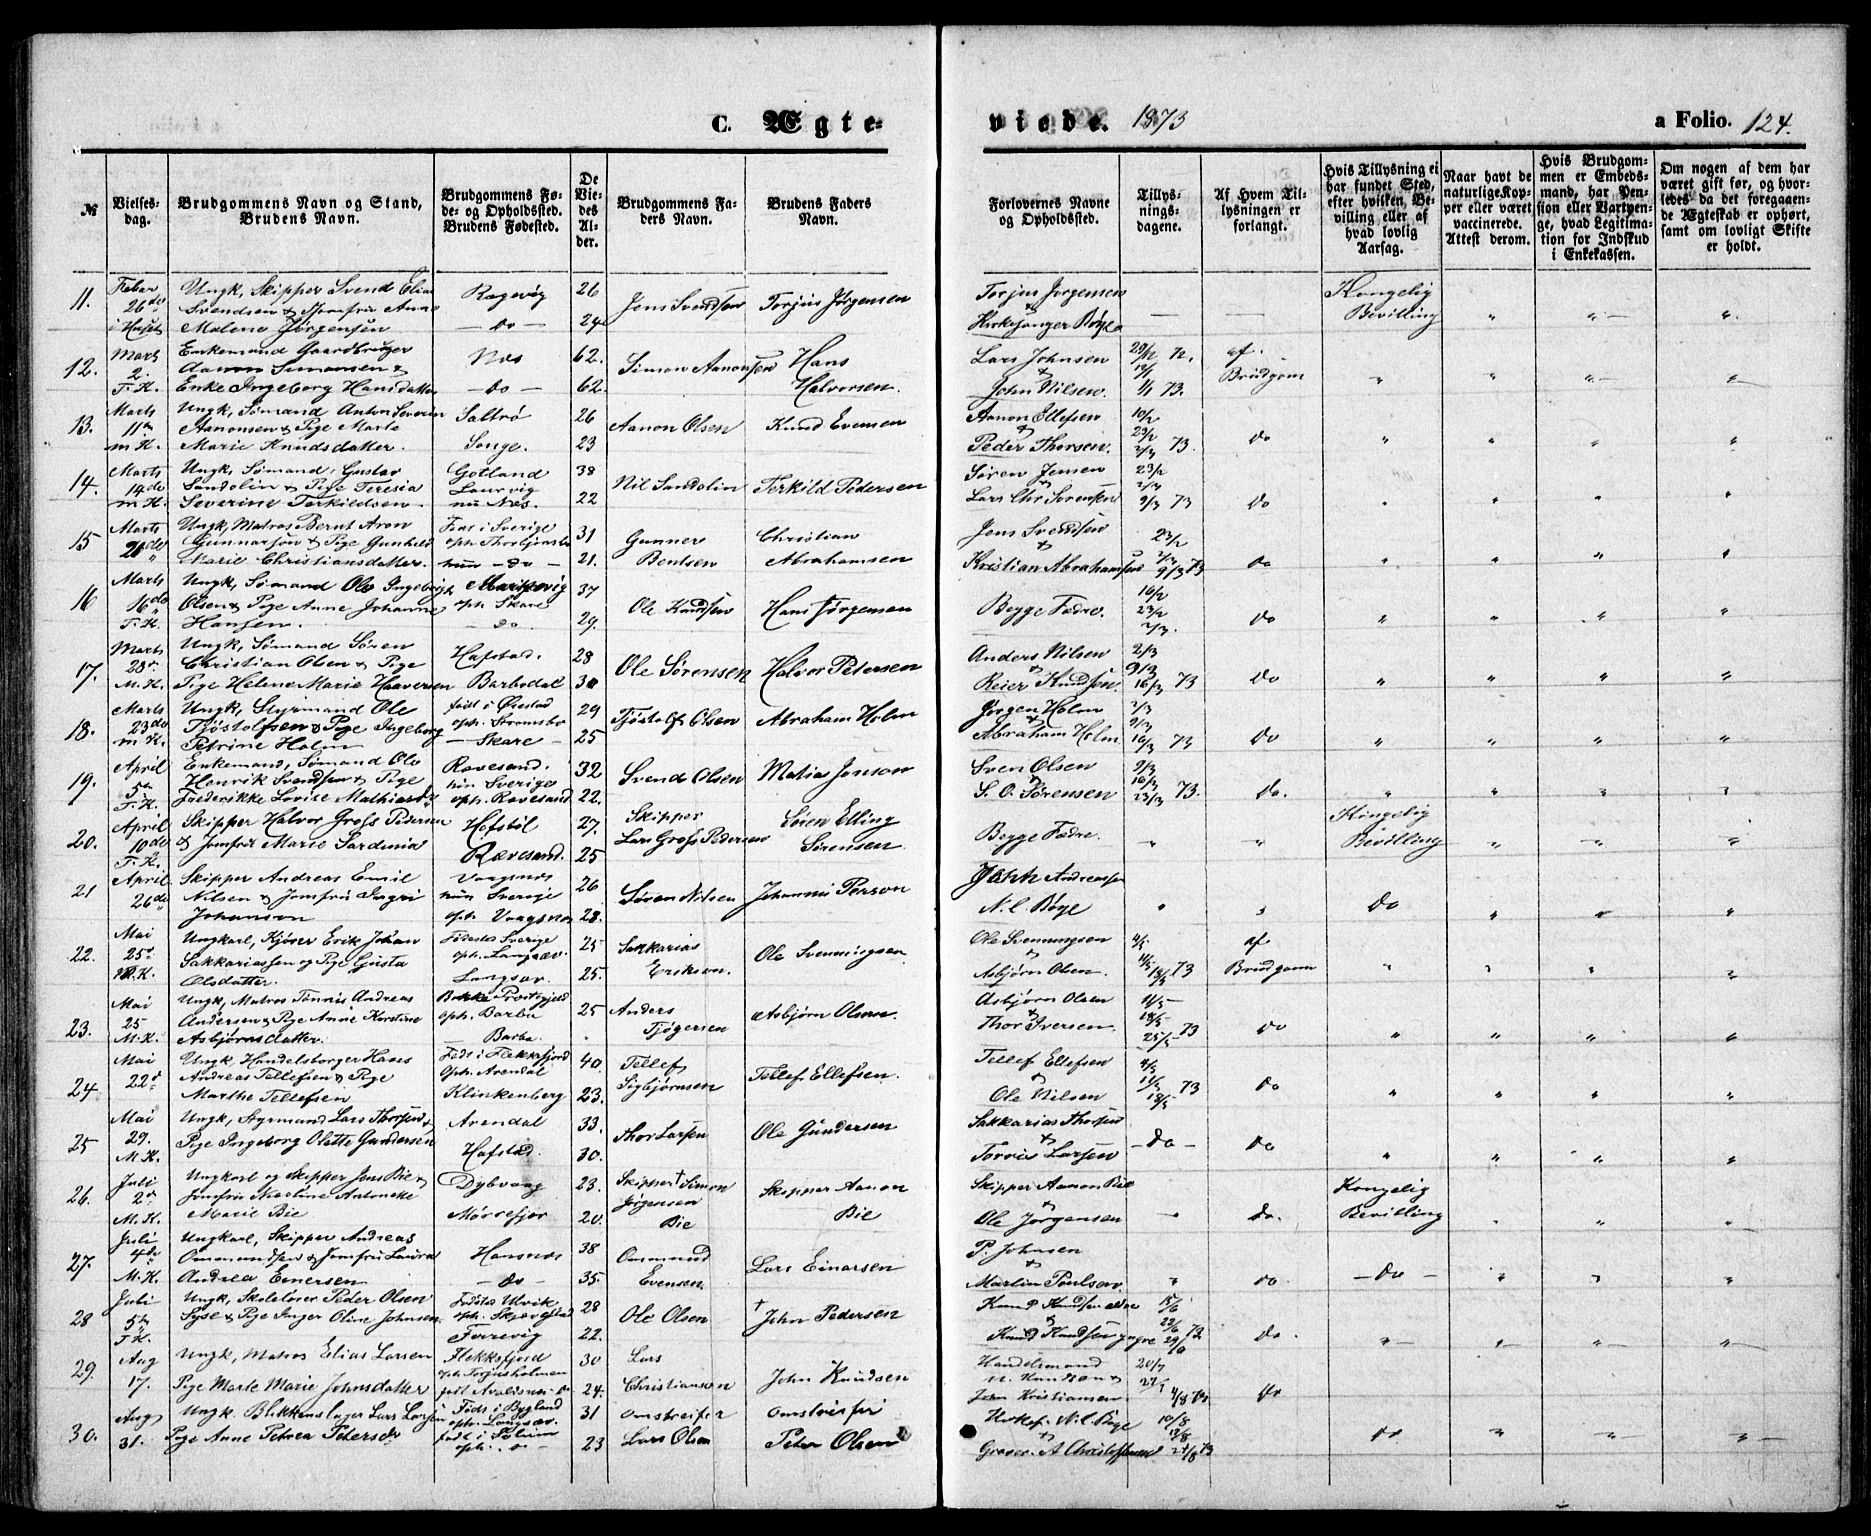 C. Ægte-
viede. 1873
a Folio. 124.
№
Vielses-
dag.
Brudgommens Navn og Stand,
Brudens Navn.
Brudgommens Fø-
de- og Opholdssted.
Brudens Fødested.
De
Vie-
des
Al-
der.
Brudgommens Fa-
ders Navn.
Brudens Faders
Navn.
Forlovernes Navne
og Opholdssted.
Tillys-
nings-
dagene.
Af Hvem Til-
lysningen er
forlangt.
Hvis Tillysning ei
har fundet Sted,
efter hvilken Be-
villing eller af
hvad lovlig
Aarsag.
Naar havt de
naturlige Kop-
per eller været
vaccinerede.
Attest derom.
Hvis Brudgom-
men er Embeds-
mand, har Pen-
sion eller Vartpen-
ge, hvad Legitima-
tion for Indskud
i Enkekassen.
Om nogen af dem har
været gift før, og hvor-
ledes da det foregaaen-
de Ægteskab er ophørt,
samt om lovligt Skifte
er holdt.
11. Febar 26de i Huset
Ungk, Skipper Svend Elias
Svendsen & Jomfru Anne
Malene Jørgensen
Ragevåg
— do —
26
24
Jens Svendsen
Torjus Jørgensen
Torjus Jørgensen
&
Kirkesanger Bøye
— —
Kongelig
Bevilling
12. Marts 2. T. K.
Enkemand Gaardbruger
Aanon Simonsen &
Enke Ingeborg Hansdatter
Næs
— do —
62.
62.
Simon Aanonsen
Hans
Halvorsen.
Lars Johnsen
&
John Nilsen.
29/12 72.
1/1 73.
af
Brudgom
13. Marts 11te m K.
Ungk, Sømand Anton Severin
Aanonsen & Pige Marte
Marie Knudsdatter.
Saltrø
Songe.
26
23
Aanon Olsen
Knud Evensen
Aanon Ellefsen
&
Peder Thorsen.
16/2
23/2
2/3 73.
do
14. Marts 14de m K.
Ungk, Sømand, Gustav
Sandolin & Pige Teresia
Severine Terkildsen
Gotland
Laurvig
nu Næs.
38
22
Nil Sandolin
Terkild Pedersen
Søren Jensen
&
Lars Chr Sørensen
23/2
2/3
9/3 73
do
15 Marts 21de "
Ungk, Matros Bernt Aron
Gunnarson & Pige Gunhild
Marie Christiansdatter.
Føds i Sverige
oph. Thorbjønsbo
hun — do —
31
21.
Gunner
Bentsen
Christian
Abrahamsen
Jens Svendsen
&
Kristian Abrahamsen
23/2
2/3
9/3 73
do
16 Marts 16de T. K.
Ungk, Sømand Ole Ingebrigt
Olsen & Pige Anne Johanne
Hansen.
oph. Skare
do
37
29.
Ole Knudsen
Hans Jørgensen
Begge Fædre.
16/2
23/2
2/3.
do
17. Marts 23de M. K.
Ungk, Sømand Søren
Christian Olsen & Pige
Pige Helene Marie Haaversen
Hafstad.
Barbodal
28
30
Ole Sørensen
Halvor Petersen
Anders Nilsen
&
Reier Knudsen.
2/3
9/3
16/3 73
do
18. Marts 23de m K.
Ungk, Styrmand Ole
Tjøstolfsen & Pige Ingeborg
Petrine Holm
født i Øiestad
oph. Strømsbo
— Skare —
29
25
Tjøstolf Olsen
Abraham Holm
Jørgen Holm
&
Abraham Holm
2/3
9/3
16/3 73
do
19. April 5te T. K.
Enkemand, Sømand Ole
Henrik Svendsen & Pige
Frederikke Lovise Mathiasdr
Ravesand.
hun Sverige
oph. Ravesand
32
22.
Svend Olsen
Matias Jonson
Sven Olsen
&
S. O. Sørensen
9/3
16/3
23/3 73.
do.
20. April 10de T. K.
Skipper Halvor Gross Pedersen
& Jomfru Marie Sardinia
Hefstøl
Rævesand.
27.
25
Skipper
Lars Gross Pedersen
Søren Elling
Sørensen
Begge Fædre.
Kongelig
Bevilling
21 April 26de
Skipper Andreas Emil
Nilsen & Jomfru Ingri
Johanson
Vaagsnes
hun Sverige
oph. Vaagsnes
26
28.
Søren Nilsen
Johannes Person
John Andreassen
N. C. Bøye
do
22. Mai 25de M. K.
Ungkarl, Kjører Erik Johan
Sakkariassen og Pige Gusta
Olsdatter.
Fødested Sverige
oph. Langsæv.
Langsæv.
25
25.
Sakkarias
Erikson.
Ole Svenningsen
Ole Svenningsen
&
Asbjørn Olsen.
4/5
11/5
18/5 73
af
Brudgom
23. Mai 25 M. K.
Ungk, Matros Tønnes Andreas
Andersen & Pige Anne Kirstine
Asbjørnsdatter.
Bakke Præstegjeld
oph. Barbu
Barbu.
25
Anders
Tjøgersen
Asbjørn Olsen.
Asbjørn Olsen
&
Thor Iversen.
11/5
18/5
25/5 73
do
24. Mai 22d
Ungk, Handelsborger Hans
Andreas Tellefsen & Pige
Marthe Tellefsen
Føds i Flekkefjord
oph. Arendal
Klinkenberg
40.
23.
Tellef
Sigbjørnsen
Tellef Ellefsen.
Tellef Ellefsen
&
Ole Nilsen
4/5
11/5 73
18/5
do
25 Mai 29. M. K.
Ungk, Styrmand Lars Thorsen &
Pige Ingeborg Olette Gundersen
Arendal
Hafstad.
33.
30.
Thor Larsen
Ole Gundersen
Sakkarias Thorsen
&
Torvis Larsen
— do —
do
26. Juli 2d M. K.
Ungkarl og Skipper Jens Bie &
Jomfru Karline Antonette
Marie Bie
Dybvaag
Mørrefjær
23.
20.
Skipper † Simon
Jørgensen
Bie
Skipper Aanon
Bie
Skipper Aanon Bie
&
Ole Jørgensen
do.
Kongelig
Bevilling
27. Juli 4de M. K.
Ungkarl, Skipper Andreas
Ommundsen & Jomfru Laura
Andrea Einersen
Hansnæs
— do —
38
35.
Ommund
Evensen.
Lars Einarsen
P. Johnsen
&
Martin Poulsen.
do.
— do —
28 Juli 5te T. K.
Ungk, Skolelærer Peder Olsen
Syse & Pige Inger Oline Johnsen
Fødested Ulvik
oph. Skjævestad
Færevig
28
22.
Ole Olsen
† John Pedersen
Knud Knudsen eldre
&
Knud Knudsen yngre
15/6
22/6
29/6 73
do.
29. Aug 17.
Ungk, Matros Elias Larsen
Pige Marte Marie Johnsdatter
Flekkefjord
oph. Torjusholmen
født Avaldsnes
30
24.
Lars
Christiansen
John Knudsen
Handelsmand
N. Knudsen &
Jens Kristiansen.
20/7
27/7
do
30. Aug 31.
Ungk. Blikkenslager Lars Larsen
Pige Anne Petrea Petersdr
Føds i Bygland
oph. Langsæv.
31
23
omstreifer
Lars Olsen
omstreifer
Peter Olsen
Kirkes. N. C. Bøye
&
Graver A. Christoffersen
10/8
24/8 73
do